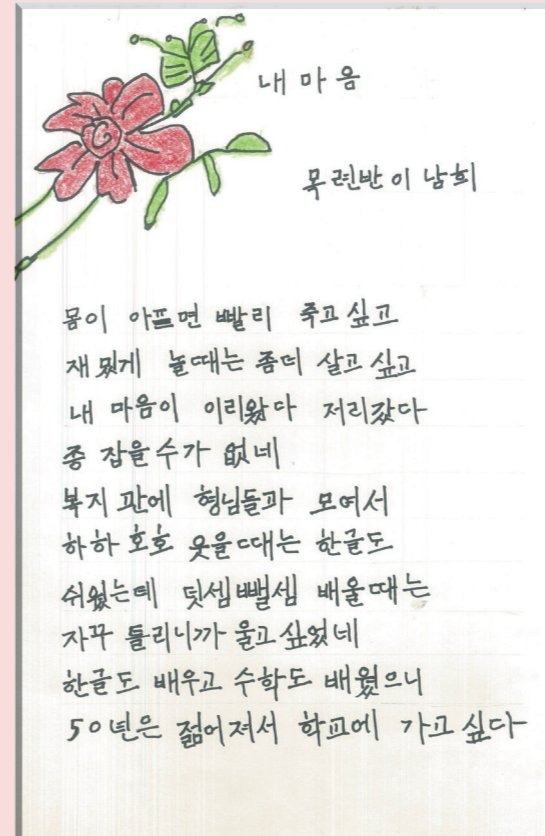 내 마 음
목련반 이 남희
몸이 아프면 빨리 죽고 싶고
재밌게 놀때는 좀더 살고 싶고
내 마음이 이리왔다 저리갔다
종 잡을 수가 없네
복지 관에 형님들과 모여서
하하 호호 웃을때는 한글도
쉬웠는데 덧셈뺄셈 배울때는
자꾸 틀리니까 울고 싶었네
한글도 배우고 수학도 배웠으니
50년은 젊어져서 학교에 가고 싶다